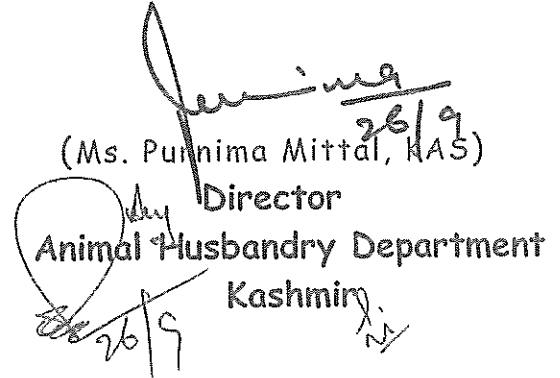 Purnima
26/9
(Ms. Purnima Mittal, KAS)
Director
Animal Husbandry Department
Kashmir
26/9